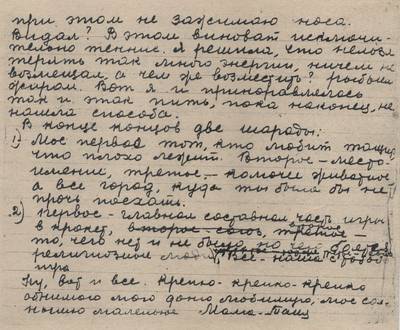 при этом не зажимаю носа.
Видал? В этом виноват исключи-
тельно теннис. Я решила, что нельзя
терять так много энергии, ничем не
возмещая, а чем же возместить? рыбьим
жиром. Вот я и приноравливалась
так и этак пить, пока наконец, не
нашла способа.
В конце концов две шарады:
1) Мое первое тот, кто любит тащить,
что плохо лежит. Второе – место-
имение, третье – колючее животное
а все город, куда ты была бы не
прочь поехать.
2) Первое – главная составная часть игры
в крокет, второе – союз, третье –
то, чего нет и не было, но боятся
религиозные люди, Все – наша с тобой
игра
Ну, вот и все. Крепко-крепко-крепко
обнимаю мою дочь любимую, мое сол-
нышко маленькое Мама-Таня